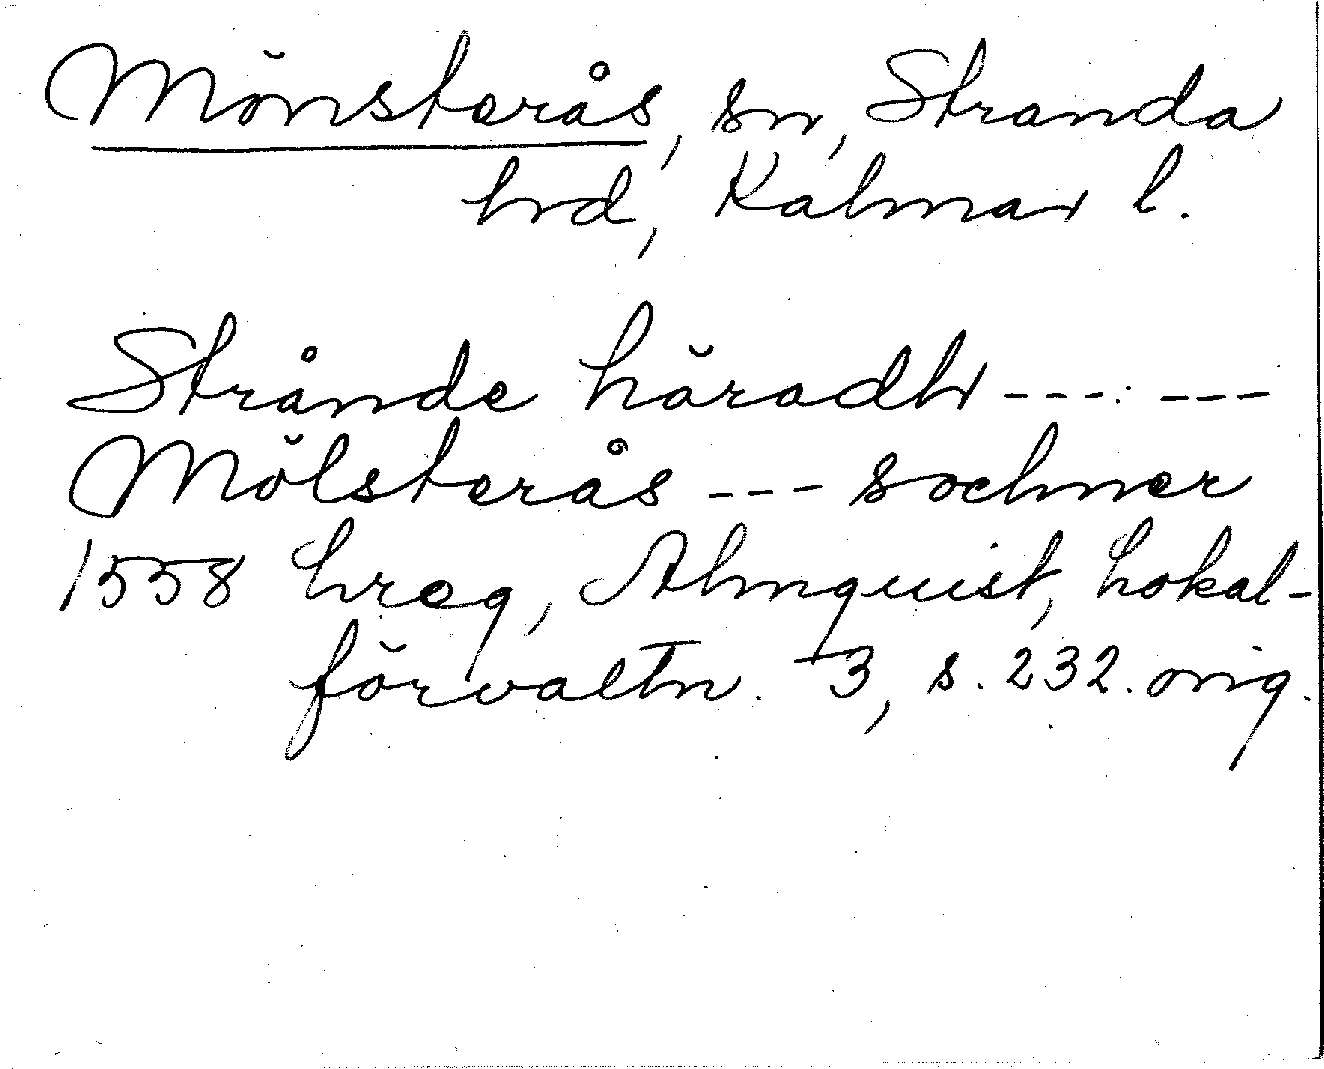 Mönsterås, sn, Stranda
hrd, Kalmar l.
Strånde häradh --- ---
Mölsterås --- sochner
1558 hreg, Almquist, Lokal-
förvaltn. 3, s. 232. orig.